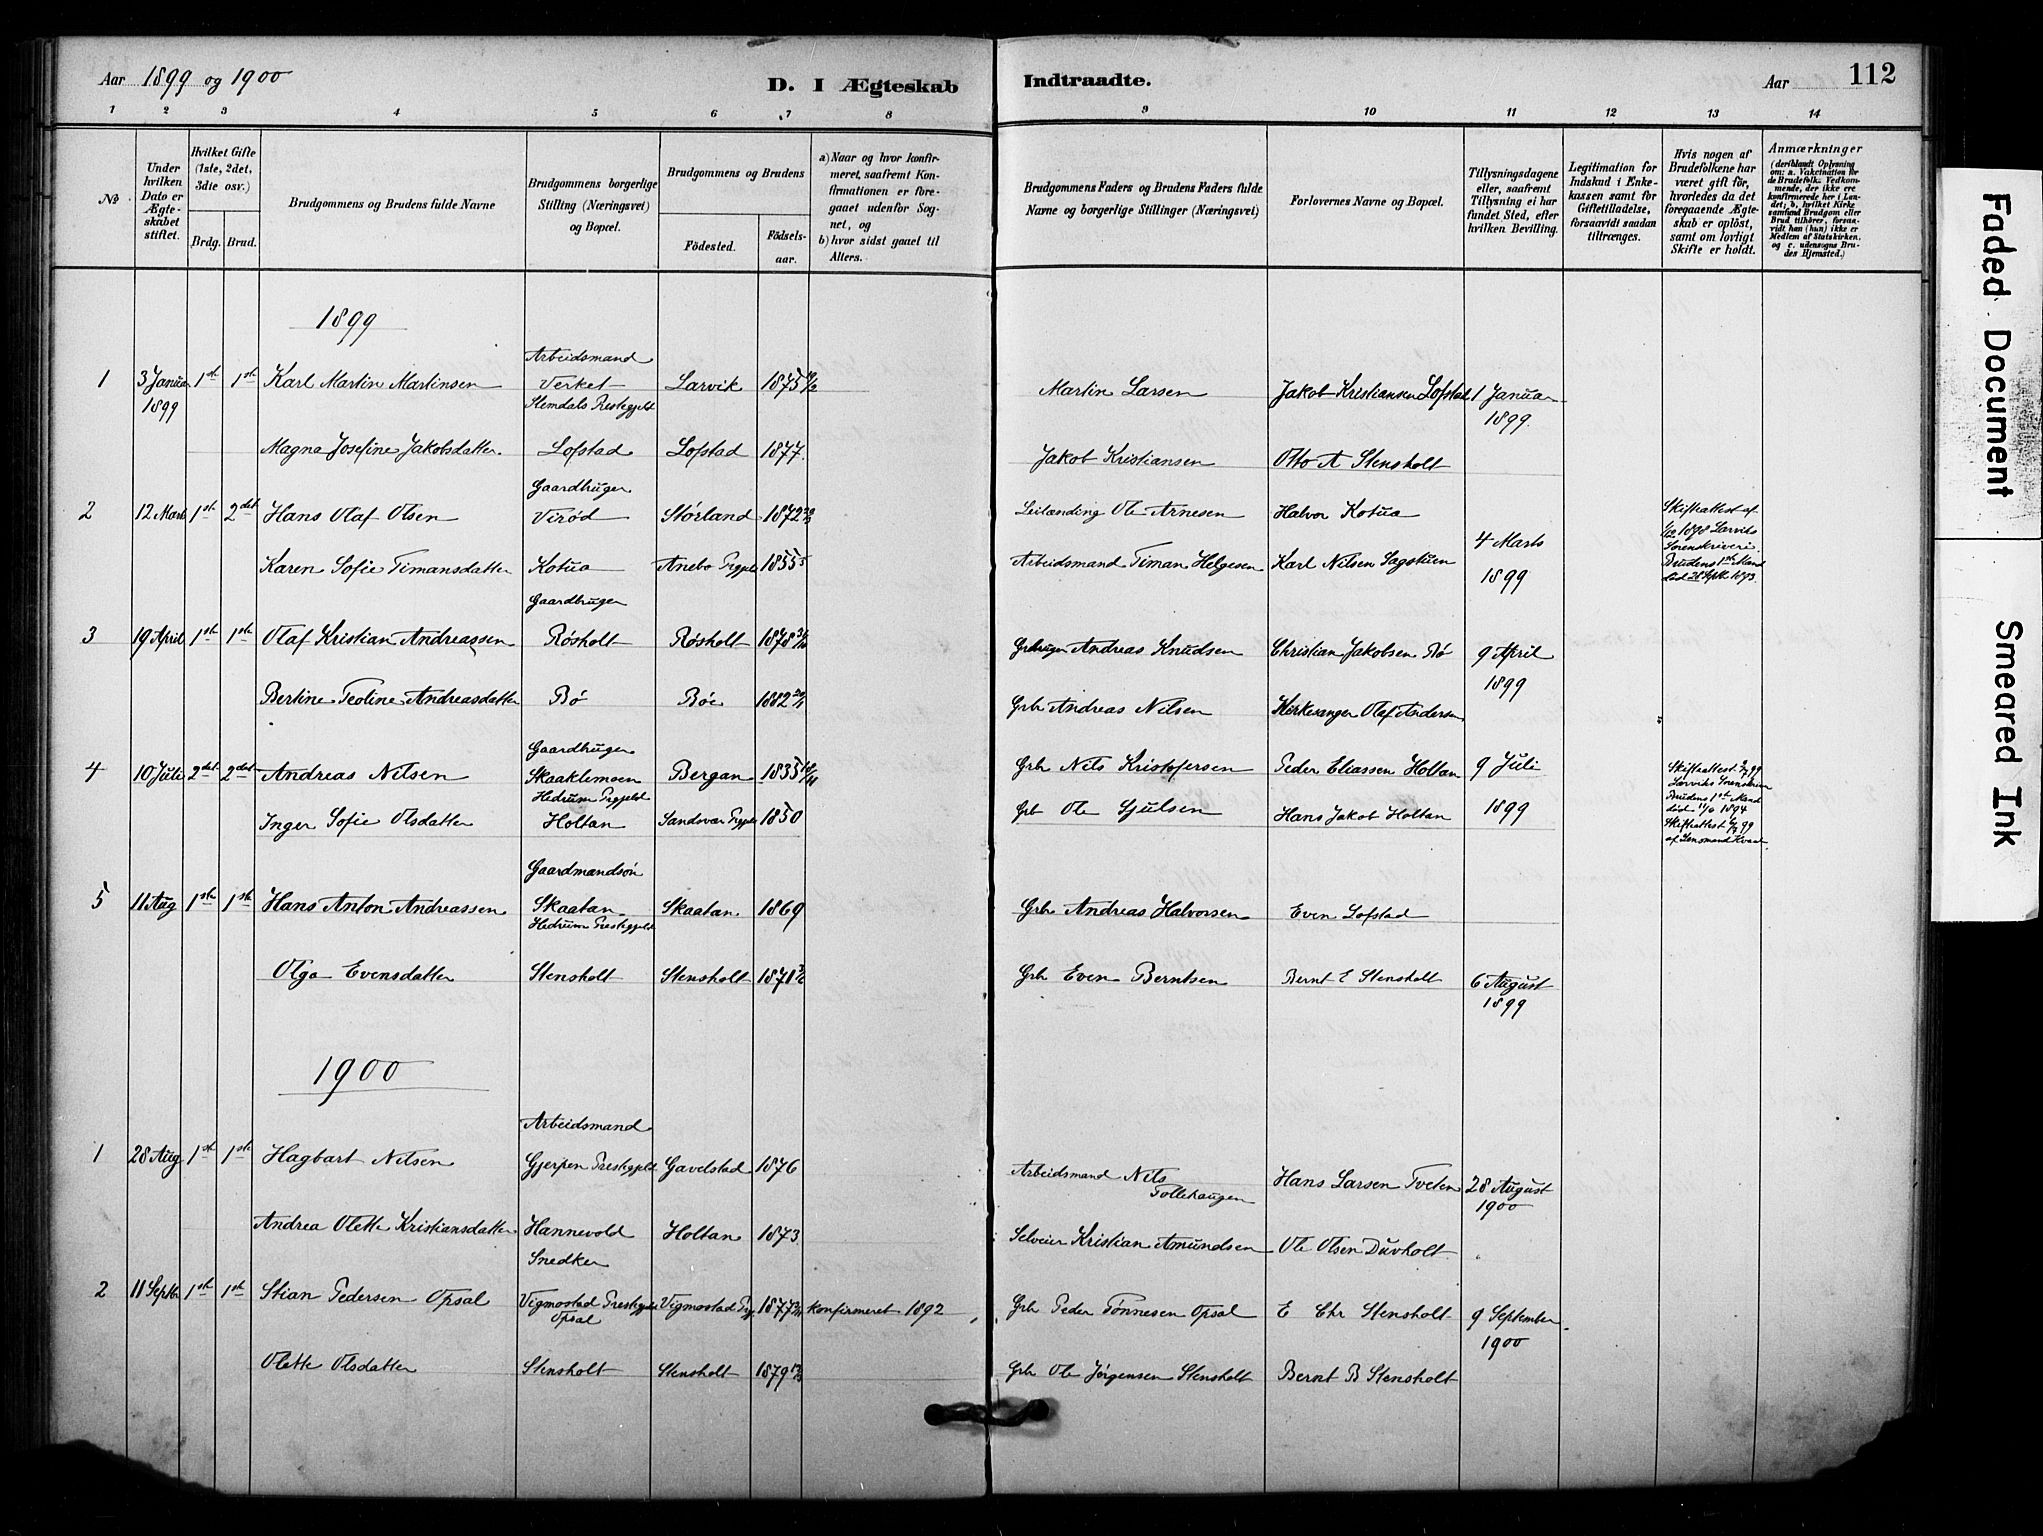 Aar 1899 og 1900
D. I Ægteskab
Indtraadte.
Aar
112
1 2 3 4 5 6 7 8 9 10 11 12 13 14
No
Under hvilken Dato er Ægteskabet stiftet.
Hvilket Gifte (1ste, 2det, 3die osv.)
Brdg. Brud.
Brudgommens og Brudens fulde Navne
Brudgommens borgerlige Stilling (Næringsvei) og Bopæl.
Brudgommens og Brudens
Fødested. Fødselsaar.
a) Naar og hvor konfirmeret, saafremt Konfirmationen er foregaaet udenfor Sognet, og
b) hvor sidst gaaet til Alters.
Brudgommens Faders og Brudens Faders fulde Navne og borgerlige Stillinger (Næringsvei)
Forlovernes Navne og Bopæl.
Tillysningsdagene eller, saafremt Tillysning ei har fundet Sted, efter hvilken Bevilling.
Legitimation for Indskud i Enkekassen samt for Giftetilladelse, forsaavidt saadan tiltrænges.
Hvis nogen af Brudefolkene har været gift før, hvorledes da det foregaaende Ægteskab er opløst, samt om lovligt Skifte er holdt.
Anmærkninger
(deriblandt Oplysning om: a. Vakcination for de Brudefolk. Vedkommende, der ikke ere konfirmerede her i Landet; b, hvilket Kirkesamfund Brudgom eller Brud tilhører, forsaavidt han (hun) ikke er Medlem af Statskirken. og c. udensogns Brudes Hjemsted.)
1899
Arbeidsmand
1 3 Januar 1st 1st Karl Martin Martinsen Verket Larvik 1875 Martin Larsen Jakob Kristiansen Lofstad 1 Januar
1899 Slemdals Prestegjeld 1899.
Magna Josefine Jakobsdatter Lofstad Lofstad 1877. Jakob Kristiansen Otto A Stensholt
Gaardbruger
2 12 Marts 1st 2det Hans Olaf Olsen Virød Størland 1872 Leilænding Ole Arnesen Halvor Kotua 4 Marts
Skifteattest af 1898 Larviks Sorenskriveri.
Brudens 1st Mand død 28 Sept. 1893.
Karen Sofie Timansdatter Kotua Anebo Prgjeld 1855 Arbeidsmand Timan Helgesen Karl Nilsen Sagstuen 1899
Gaardbruger
3 19 April 1st 1st Olaf Kristian Andreassen Røsholt Røsholt 1878 Grbruger Andreas Knudsen Christian Jakobsen Bø 9 April
1899
Bertine Teoline Andreasdatter Bø Bøe 1882 Grb Andreas Nilsen Kirkesanger Olaf Andersen
Gaardbruger
4 10 Juli 2det 2det Andreas Nilsen Skaaklemoen Bergan 1855 Grb Nils Kristofersen Peder Eliassen Holtan 9 Juli
Hedrum Prgjeld
Inger Sofie Olsdatter Holtan Sandsvær Prgjeld 1850 Grb Ole Gjulsen Hans Jakob Holtan 1899
Brudens 1st Mand død 1894
Skifteattest 99 af Lensmand
Gaardmandsøn
5 11 Aug 1st 1st Hans Anton Andreassen Skaatan Skaatan 1869 Grb Andreas Halvorsen Even Lofstad
Hedrum Prestegjeld
Olga Evensdatter Stensholt Stensholt 1878 Grb Even Berntsen Bernt E Stensholt 6 August
1899
1900
Arbeidsmand
1 28 Aug 1st 1st Hagbart Nilsen Gjerpen Prestegjeld Gavelstad 1876 Arbeidsmand Nils Tollehaugen Hans Larsen Tveten 28 August
1900
Andrea Olette Kristiansdatter Hannevold Holtan 1873 Selveier Kristian Amundsen Ole Olsen Duvholt
Snedker
2 11 Septbr 1st 1st Stian Pedersen Opsal Vigmostad Prestegjeld Vigmostad Prgj. 1877 konfirmeret 1892 Grb Peder Tønnesen Opsal E Chr Stensholt 9 September
Opsal 1900
Olette Olsdatter Stensholt Stensholt 1879 Grb Ole Jørgensen Stensholt Bernt B Stensholt
Faded Document
Smeared Ink